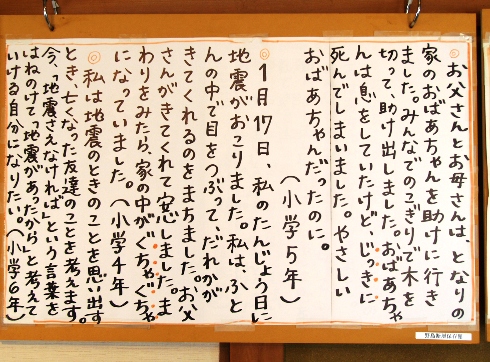 ◎お父さんとお母さんは、となりの
家のおばあちゃんを助けに行き
ました。みんなでのこぎりで木を
切って、助け出しました。おばあちゃ
んは息をしていたけど、じっきに
死んでしまいました。やさしい
おばあちゃんだったのに。
（小学５年）
◎１月１７日、私のたんじょう日に
地震がおこりました。私は、ふと
んの中で目をつぶって、だれかが
きてくれるのをまちました。お父
さんがきてくれて安心しました。ま
わりをみたら、家の中がぐちゃぐちゃ
になっていました。（小学４年）
◎私は地震のときのことを思い出す
とき、亡くなった友達のことを考えます。
今、「地震さえなければ」という言葉を
はねのけて、「地震があったから」と考えて
いける自分になりたい。（小学６年）
野島断層保存館